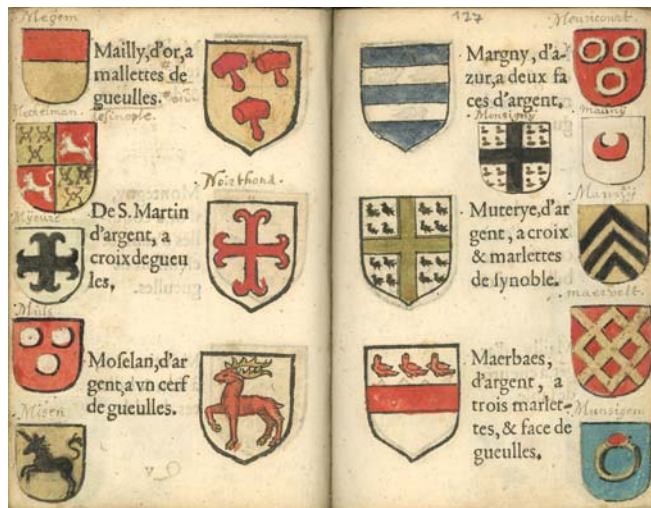 Megem
Mailly, d'or, a
mallettes de
gueulles.
desinople.
Noirthond
Myeure
De S. Martin
d'argent, a
croix de gueu
les.
Muls
Moselan, d'ar
gent, a vn cerf
de gueulles.
Misen
127
Mouricourt
Margny, d'a-
zur, a deux fa
ces d'argent.
Monsigny
Mauny
Muterye, d'ar
gent, a croix
& marlettes
de synoble.
Marnÿ
maervelt
Maerbaes,
d'argent, a
trois marlet-
tes, & face de
gueulles.
Munsigen